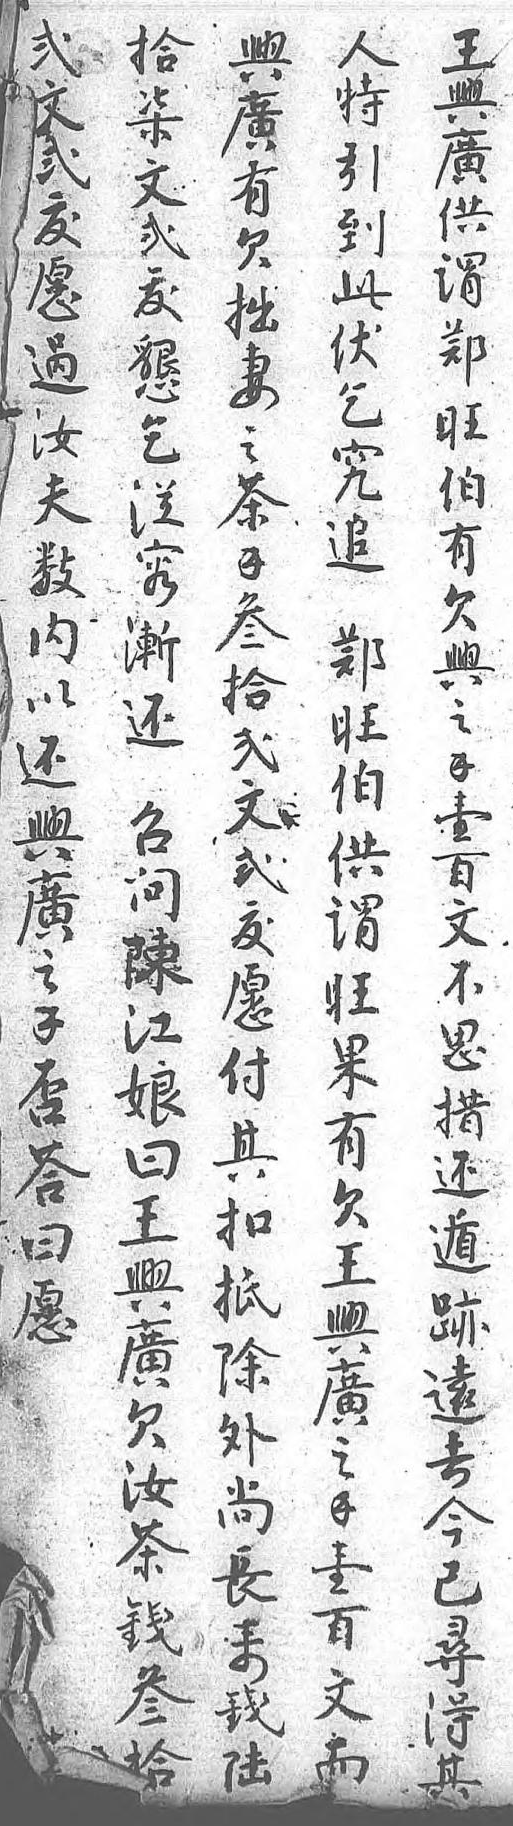 王興廣供謂鄭旺伯有欠興之钅壹百文不思措还遁跡遠去今已尋得其
人特引到此伏乞究追　鄭旺伯供謂旺果有欠王興廣之钅壹百文而
興廣有欠拙妻之茶钅叁拾弍文弍仸愿付其扣抵除外尚長來錢陸
拾柒文弍仸懇乞从容漸还　召问陳江娘曰王興廣欠汝茶錢叁拾
弍文弍仸愿過汝夫数内以还興廣之钅否荅曰愿